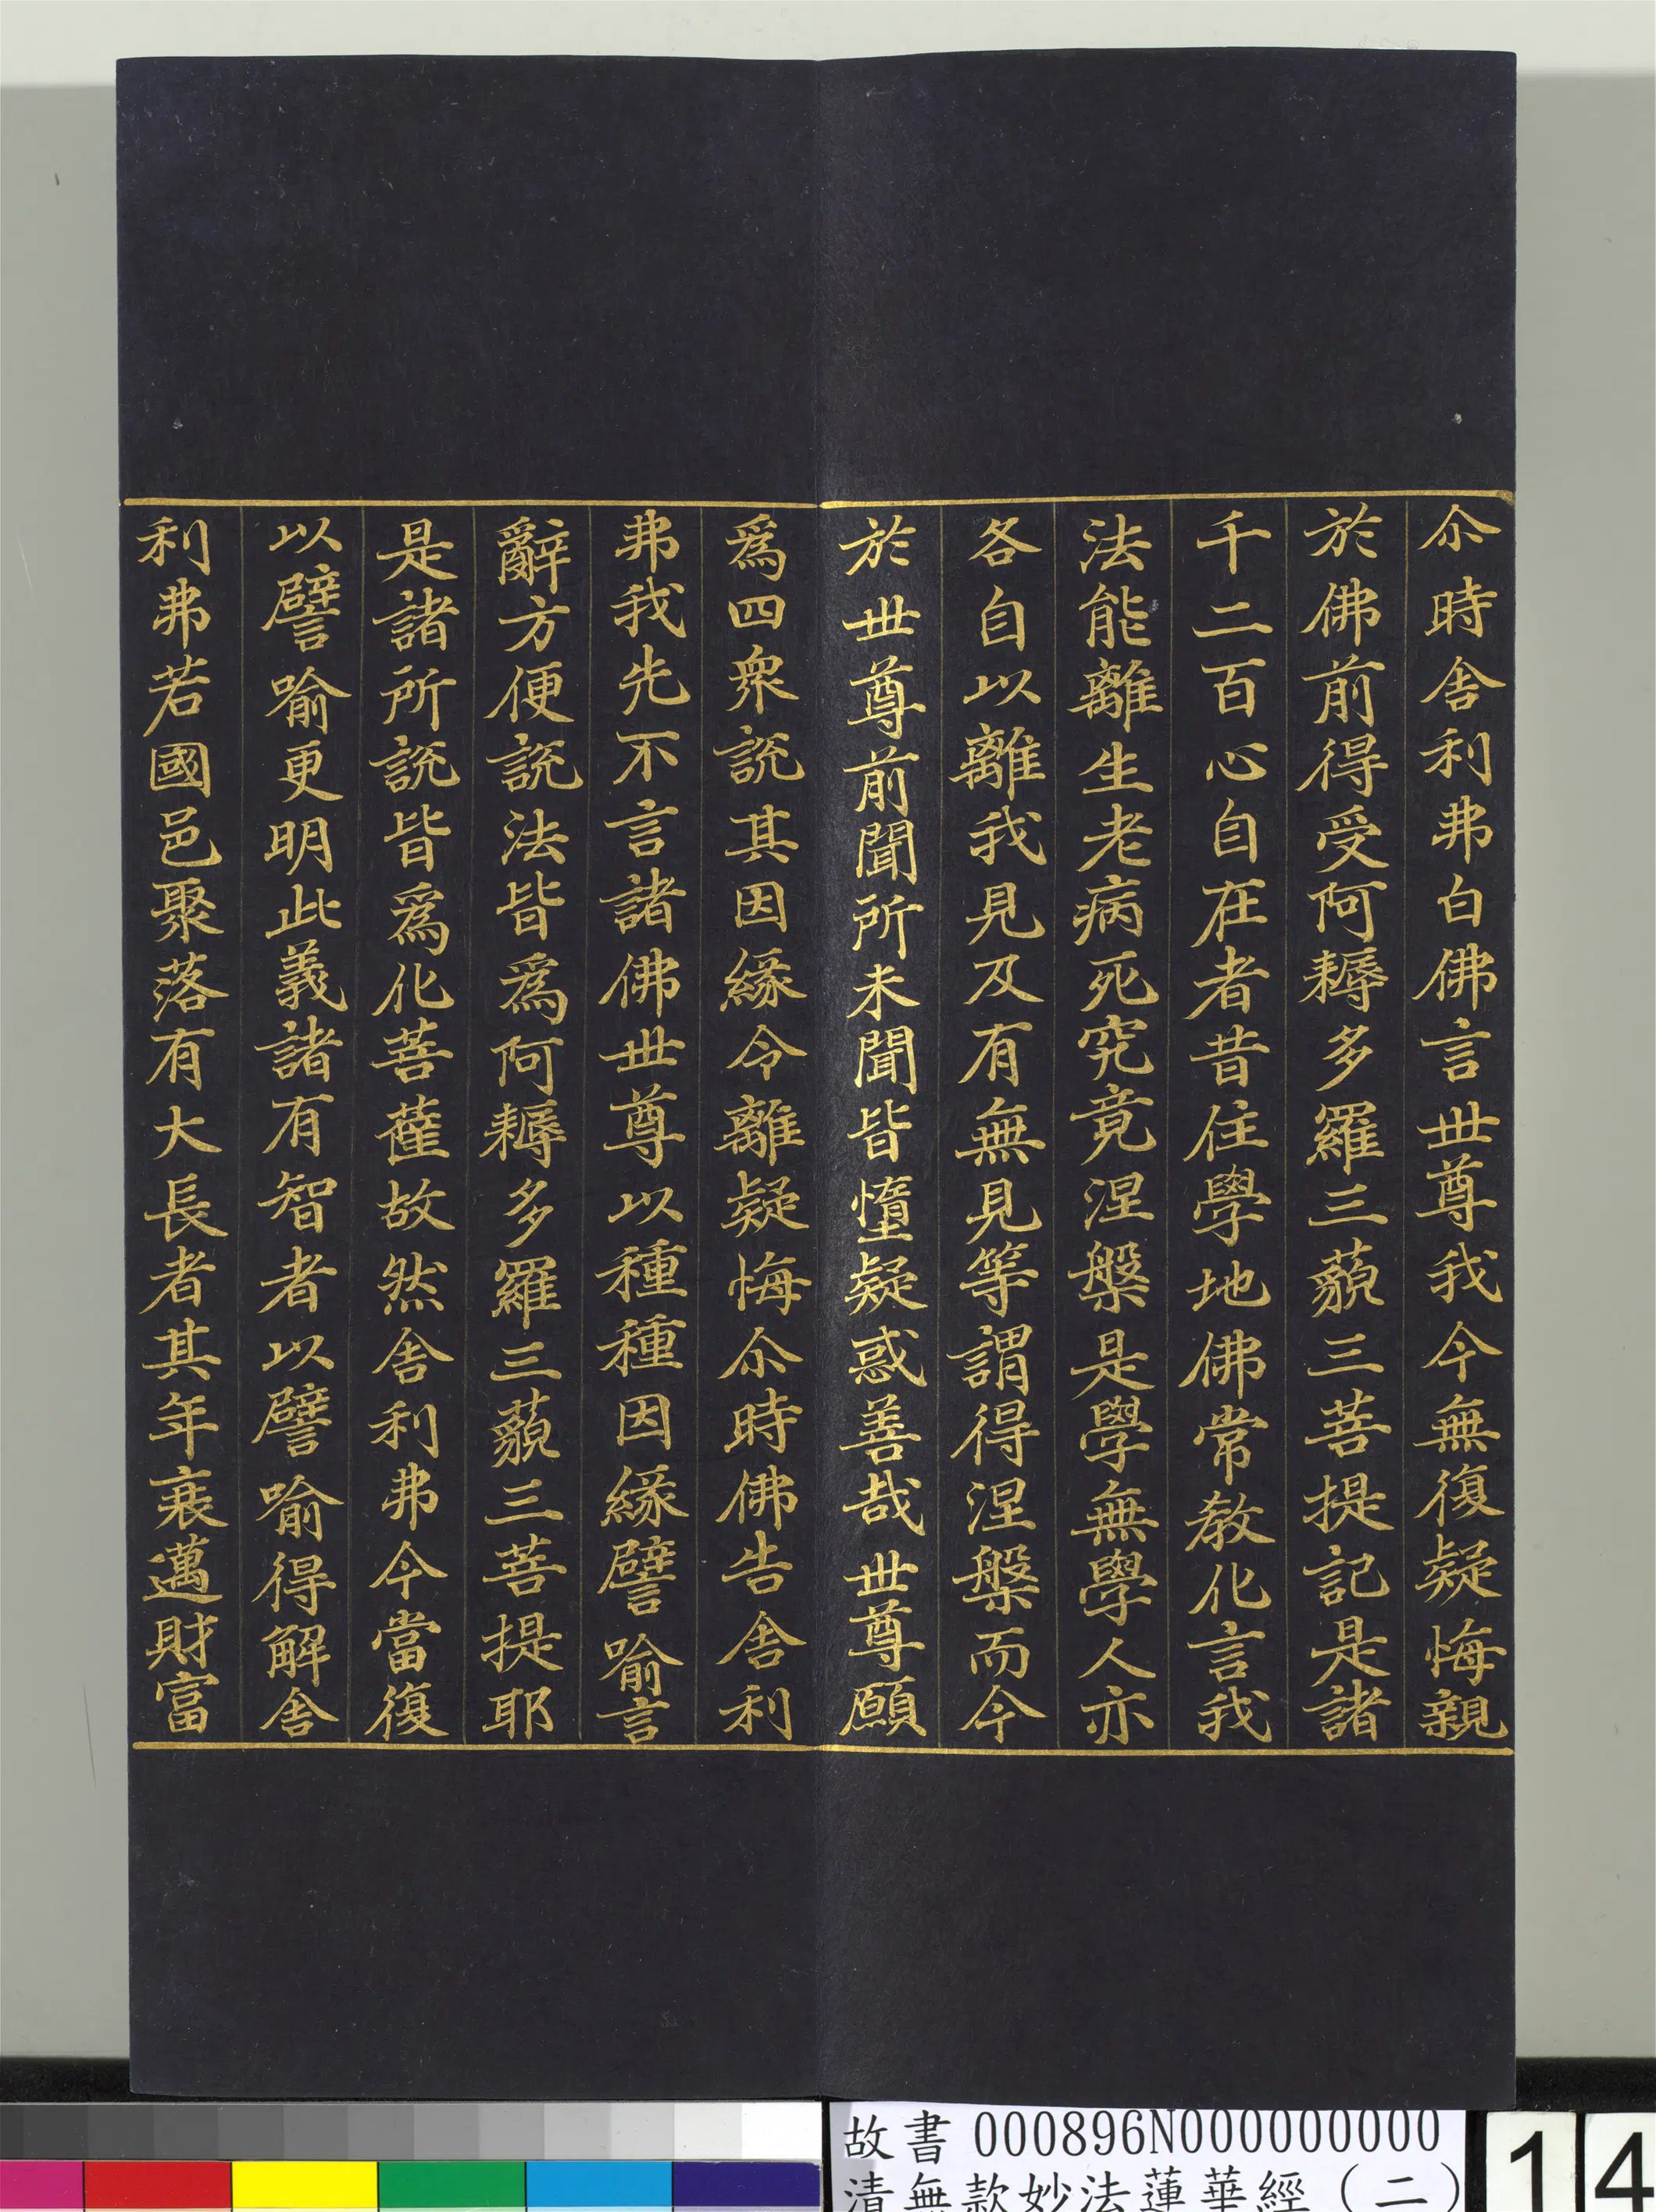 尒時舎利弗白佛言世尊我今無復疑悔親
於佛前得受阿耨多羅三藐三菩提記是諸
千二百心自在者昔住學地佛常教化言我
法能離生老病死究竟涅槃是學無學人亦
各自以離我見及有無見等謂得涅槃而今
於世尊前聞所未聞皆墮疑惑善哉世尊願
爲四衆説其因緣令離疑悔尒時佛告舎利
弗我先不言諸佛世尊以種種因緣譬喻言
辭方便説法皆爲阿耨多羅三藐三菩提耶
是諸所説皆爲化菩薩故然舎利弗今當復
以譬喻更明此義諸有智者以譬喻得解舎
利弗若國邑聚落有大長者其年衰邁財富
故書 000896N000000000
清無款妙法蓮華經（二）
14